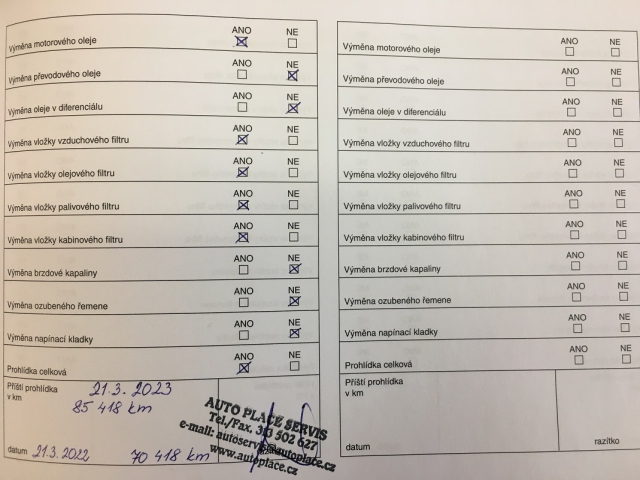 ANO NE
Výměna motorového oleje
ANO NE
Výměna převodového oleje
ANO NE
Výměna oleje v diferenciálu
ANO NE
Výměna vložky vzduchového filtru
ANO NE
Výměna vložky olejového filtru
ANO NE
Výměna vložky palivového filtru
ANO NE
Výměna vložky kabinového filtru
ANO NE
Výměna brzdové kapaliny
ANO NE
Výměna ozubeného řemene
ANO NE
Výměna napínací kladky
ANO NE
Prohlídka celková
Příští prohlídka 21.3. 2023
v km 85 418 km
AUTO PLACE SERVIS
Tel./Fax. 313 502 627
e-mail: autoservis@autoplace.cz
www.autoplace.cz
datum 21.3.2022 70 418 km
ANO NE
Výměna motorového oleje
ANO NE
Výměna převodového oleje
ANO NE
Výměna oleje v diferenciálu
ANO NE
Výměna vložky vzduchového filtru
ANO NE
Výměna vložky olejového filtru
ANO NE
Výměna vložky palivového filtru
ANO NE
Výměna vložky kabinového filtru
ANO NE
Výměna brzdové kapaliny
ANO NE
Výměna ozubeného řemene
ANO NE
Výměna napínací kladky
ANO NE
Prohlídka celková
Příští prohlídka
v km
datum razítko